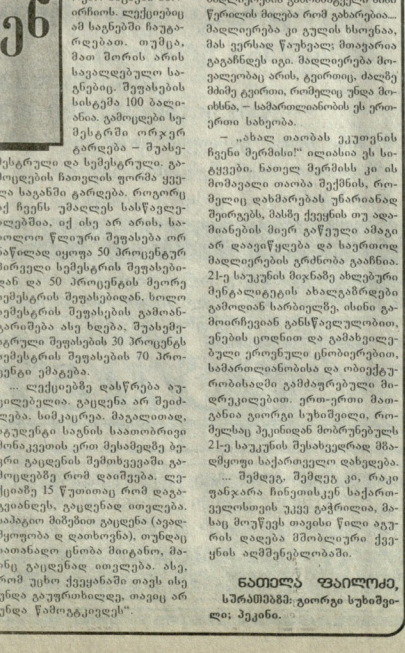 ენ
ირჩიოს. ლექციებიც
ამ საგნებში ჩაუტა-
რდებათ. თუმცა,
მათ შორის არის
სავალდებულო სა-
გნებიც. შეფასების
სისტემა 100 ბალი-
ანია. გამოცდები სე-
მესტრში ორჯერ
ტარდება – შუასე-
მესტრული და სემესტრული. გა-
მოცდების ჩათვლის ფორმა ყვე-
ლა საგანში ტარდება. როგორც
აქ ჩვენს უმაღლეს სასწავლე-
ბლებშია, იქ ისე არ არის, სა-
ბოლოო წლიური შეფასება ორ
ნაწილად იყოფა 50 პროცენტურ
პირველი სემესტრის შეფასები-
დან და 50 პროცენტის მეორე
სემესტრის შეფასებიდან. ხოლო
სემესტრის შეფასების გამოან-
გარიშება ასე ხდება. შუასემე-
სტრული შეფასების 30 პროცენტს
სემესტრის შეფასების 70 პრო-
ცენტი ემატება.
... ლექციებზე დასწრება აუ-
ცილებელია. გაცდენა არ შეიძ-
ლება. სიმკაცრეა. მაგალითად,
სტუდენტი საგნის საათობრივი
მონაკვეთის ერთ მესამედზე მე-
ტი გაცდენის შემთხვევაში გა-
მოცდებზე რომ დაიშვება. ლე-
ქციაზე 15 წუთითაც რომ დაგა-
გვიანდეს, გაცდენად ითვლება.
საპატიო მიზეზით გაცდენა (ავად-
მყოფობა დ დათხოვნა), თუნდაც
სათანადო ცნობა მიიტანო, მა-
ინც გაცდენად ითვლება. ასე,
რომ უცხო ქვეყანაში თავს ისე
უნდა გაუფრთხილდე, თავიც არ
უნდა წამოგტკივდეს“.
წერილის მიღება რომ გახარებია...
მადლიერება კი გულის ხსოვნაა,
მას ვერსად წაუხვალ; მთავარია
გაგაჩნდეს იგი. მადლიერება მო-
ვალეობაც არის, ტვირთიც, ძალზე
მძიმე ტვირთი, რომელიც უნდა მო-
იხსნა, – სამართლიანობის ეს ერთ-
ერთი სახეობა.
– „ახალ თაობას ეკუთვნის
ჩვენი მერმისი!“ ილიასია ეს სი-
ტყვები. ნათელ მერმისს კი ის
მომავალი თაობა შექმნის, რო-
მელიც დახმარებას უნარიანად
შეირგებს, მასზე ქვეყნის თუ ადა-
მიანების მიერ გაწეული ამაგი
არ დაავიწყდება და საერთოდ
მადლიერების გრძნობა გააჩნია.
21-ე საუკუნის მიჯნაზე ახლებური
მენტალიტეტის ახალგაზრდები
გამოდიან სარბიელზე, ისინი გა-
მოირჩევიან განსწავლულობით,
ენების ცოდნით და გამახვილე-
ბული ეროვნული ცნობიერებით,
სამართლიანობისა და ობიექტუ-
რობისადმი გამძაფრებული მი-
დრეკილებით. ერთ-ერთი მათ-
განია გიორგი სუხიშვილი, რო-
მელსაც პეკინიდან მობრუნებულს
21-ე საუკუნის შესახვედრად მზა-
დმყოფი საქართველო დახვდება.
... შემდეგ, შემდეგ კი, რაკი
ფანჯარა ჩინეთისკენ საქართ-
ველოსთვის უკვე გაჭრილია, მა-
საც მოუწევს თავისი წილი აგუ-
რის დადება მშობლიური ქვე-
ყნის აღმშენებლობაში.
ნათელა ფაილოძე,
სურათებზე: გიორგი სუხიშვი-
ლი; პეკინი.